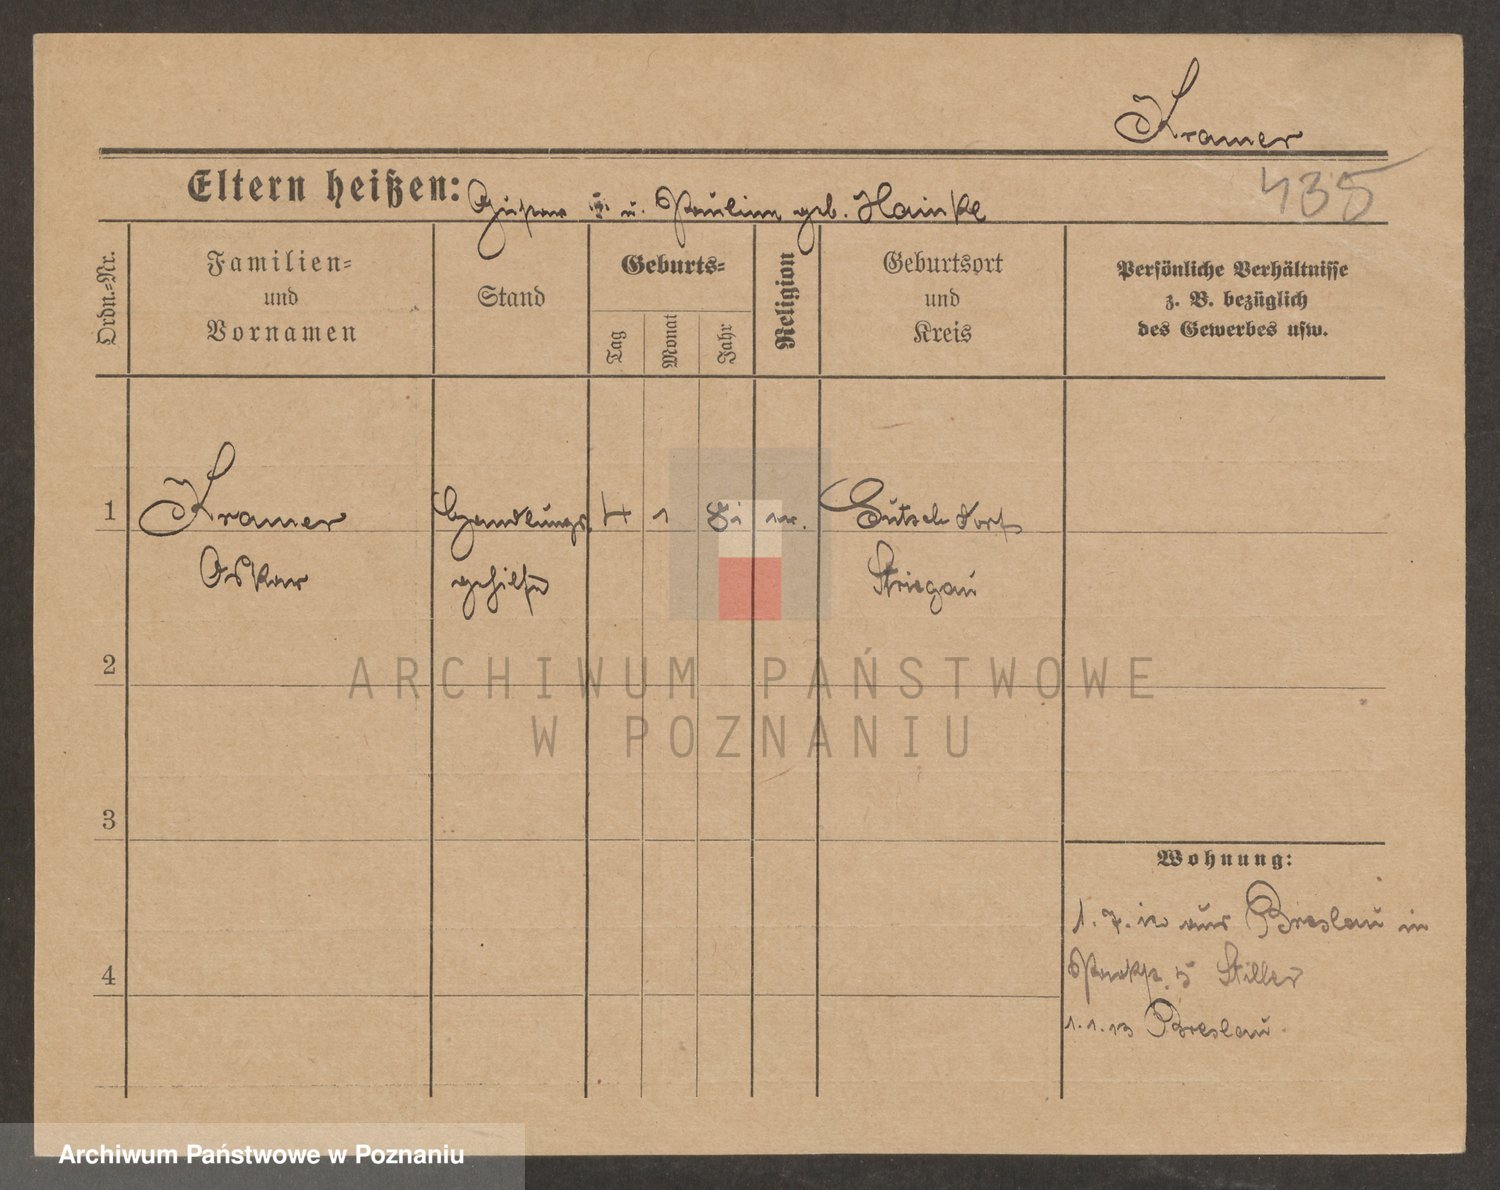 Kramer
435
Eltern heißen: Gustav u. Pauline geb. Hainke
Ordn.=Nr.
Familien=
und
Vornamen
Stand
Geburts=
Tag
Monat
Jahr
Religion
Geburtsort
und
Kreis
Persönliche Verhältnisse
z. B. bezüglich
des Gewerbes usw.
1 Kramer Handlungs. 4 1 ev. Gutschdorf
Oskar gehilfe Striegau
2
ARCHIWUM PAŃSTWOWE
W POZNANIU
3
Wohnung:
1. 7. 12 aus Breslau in
5 Stiller
4
1. 1. 13 Breslau
Archiwum Państwowe w Poznaniu